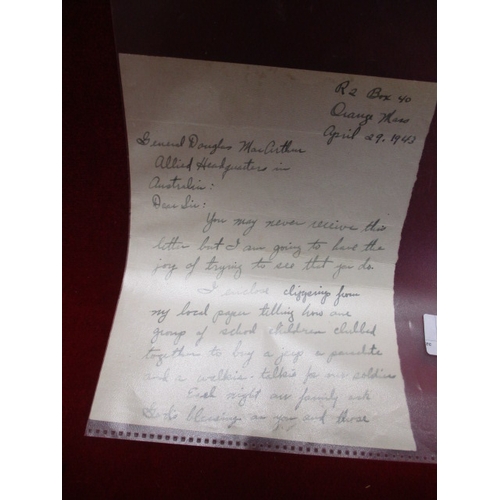 R2 Box 40
Orange Mass
April 29, 1943
General Douglas MacArthur
Allied Headquarters in
Australia:
Dear Sir:
You may never receive this
letter but I am going to have the
joy of trying to see that you do.
I enclose clippings from
my local paper telling how one
group of school children clubbed
together to buy a jeep a parachute
and a walkie-talkie for our soldiers
Each night our family ask
God's blessing on you and those